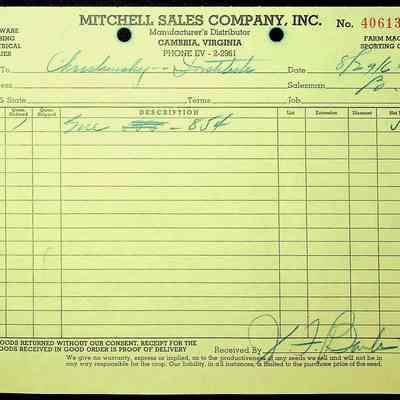 MITCHELL SALES COMPANY, INC. No. 40613
WARE Manufacturer's Distributor FARM MAC
ING CAMBRIA, VIRGINIA SPORTING
TRICAL PHONE EV - 2-2961
IES
To Christiansburg Institute Date 8/29/6
ess Salesman Po.
& State Terms Job
Quan. Ordered Quan. Shipped DESCRIPTION List Extension Discount Net
1 854
OODS RETURNED WITHOUT OUR CONSENT. RECEIPT FOR THE
OODS RECEIVED IN GOOD ORDER IS PROOF OF DELIVERY Received By
We give no warranty, express or implied, as to the productiveness of any seeds we sell and will not be in any
way responsible for the crop. Our liability, in all instances, is limited to the purchase price of the seed.